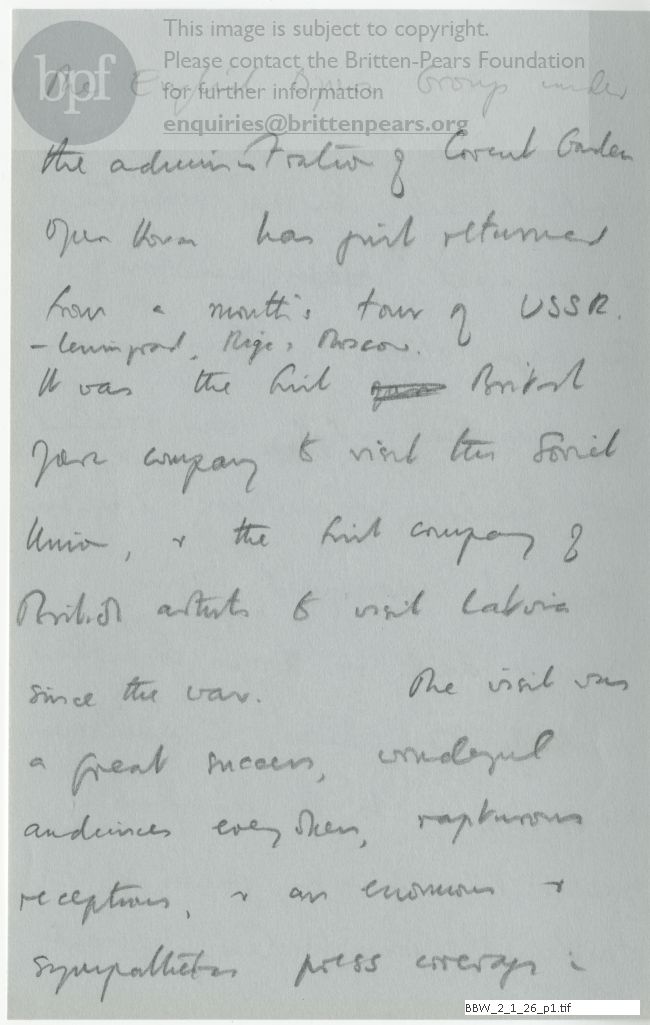 This image is subject to copyright.
Please contact the Britten-Pears Foundation
for further information
enquiries@brittenpears.org
bpf
The English Opera Group under
the administration of Covent Garden
Opera House has just returned
from a month's tour of USSR.
– Leningrad, Riga & Moscow.
It was the first British
Opera company to visit the Soviet
Union, & the first company of
British artists to visit Latvia
since the war. The visit was
a great success, wonderful
audiences everywhere, rapturous
receptions, & an enormous &
sympathetic press coverage
BBW_2_1_26_p1.tif